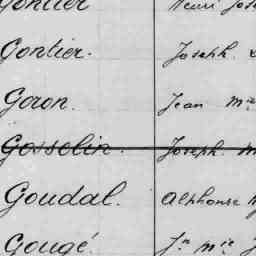 Gontier Henri
Gontier. Joseph
Goron. Jean Mie
Gosselin. Joseph
Goudal. Alphonse
Gougé. Jn Mie